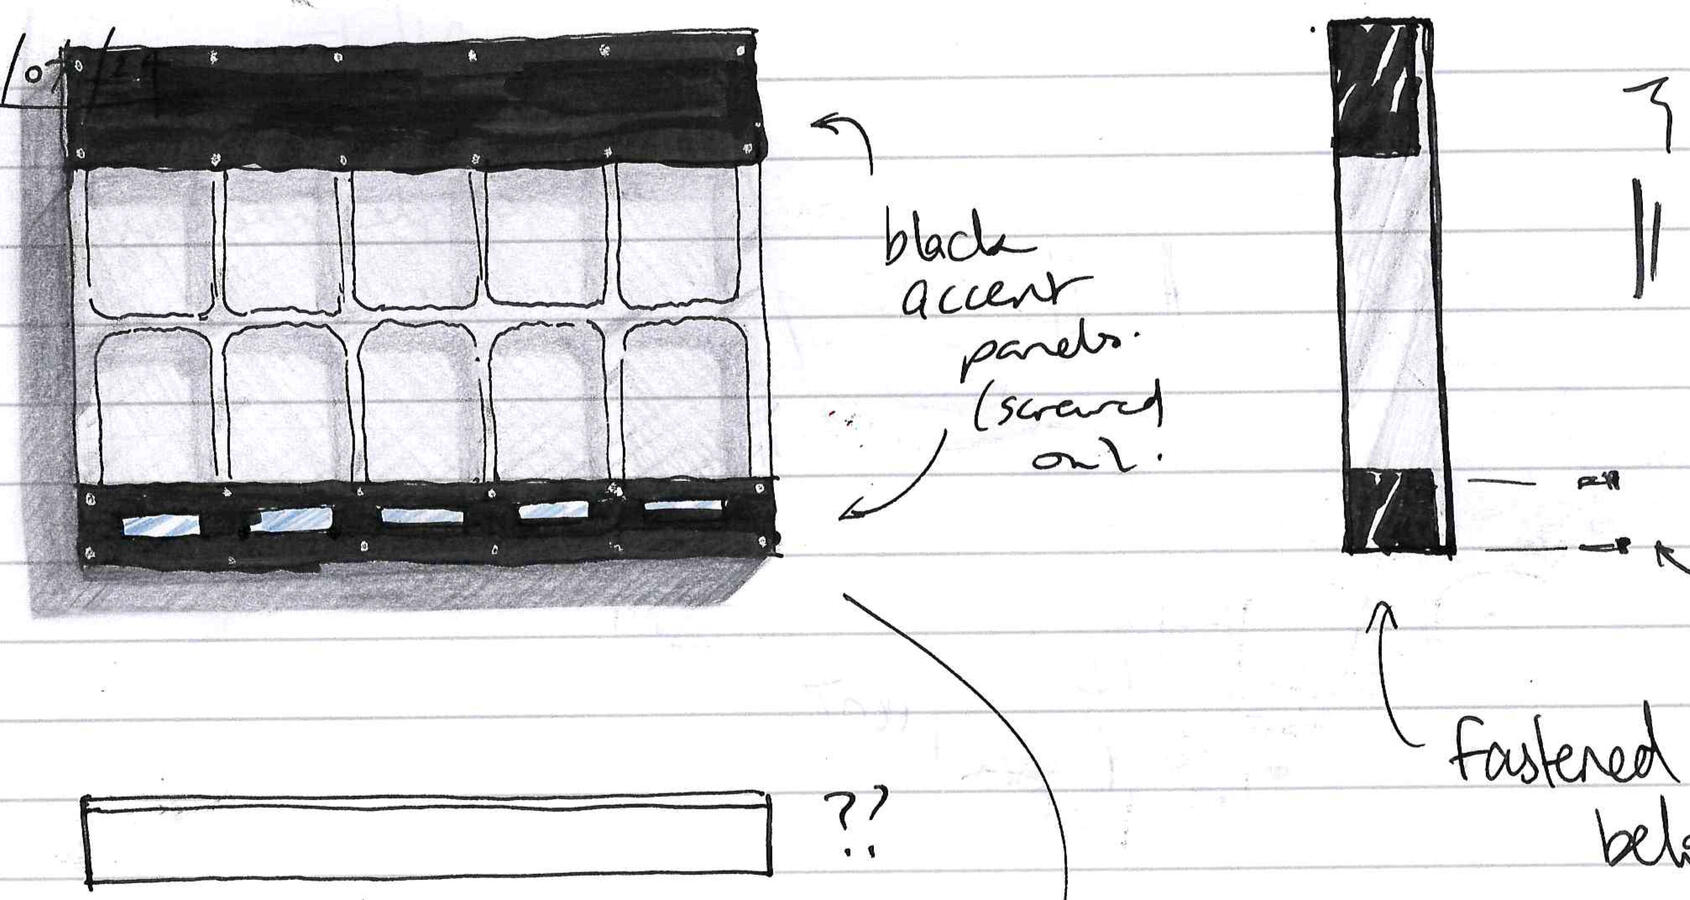 black
accent
panels.
(screwed
on).
??
Fastened